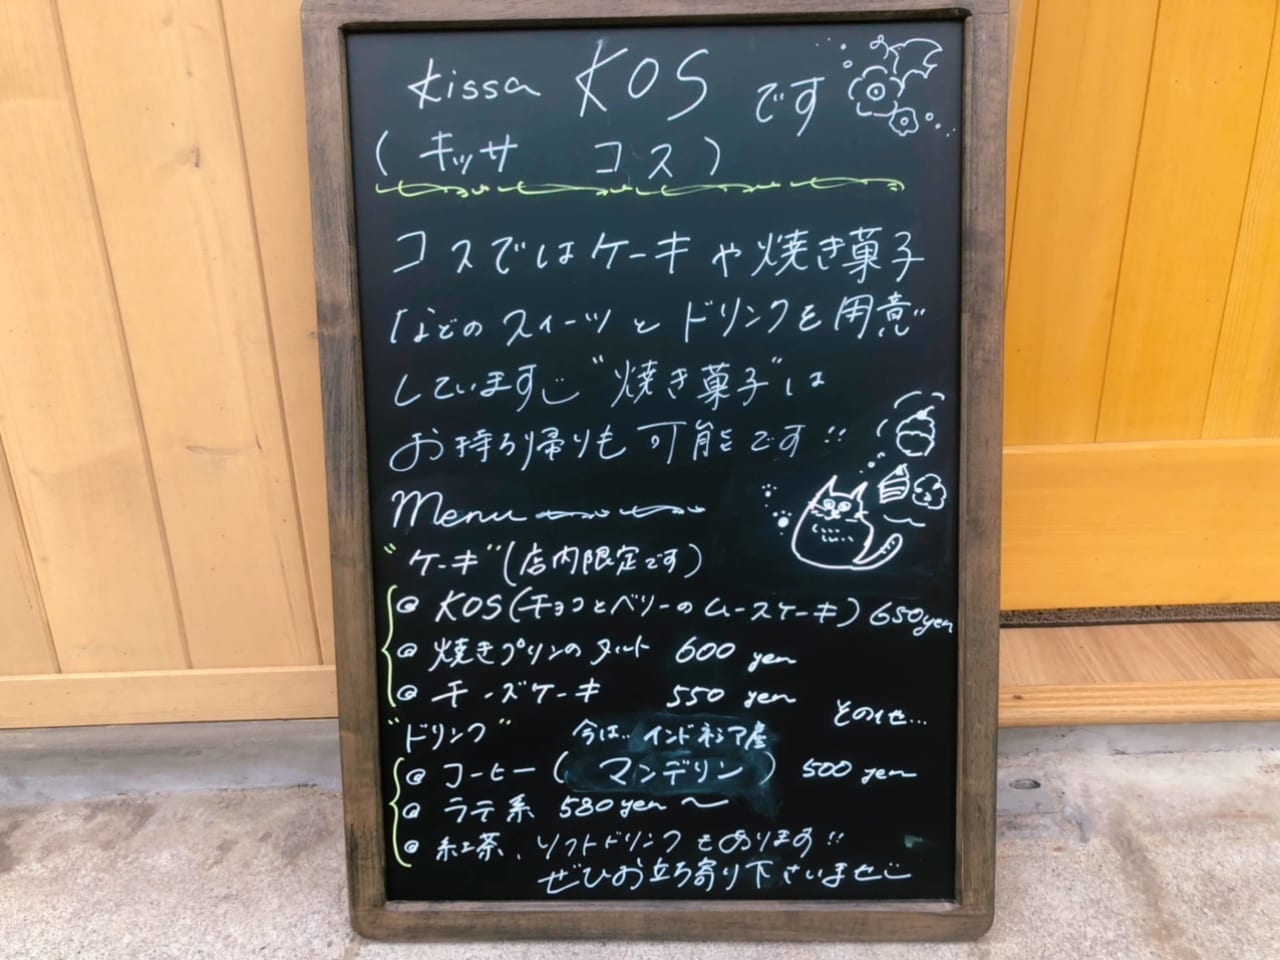 Kissa KOS です
(キッサ コス)
コスではケーキや焼き菓子
などのスイーツとドリンクを用意
しています。"焼き菓子"は
お持ち帰りも可能です!!
Menu
"ケーキ"(店内限定です)
KOS(チョコとベリーのムースケーキ) 650yen
焼きプリンのタルト 600 yen
チーズケーキ 550 yen
その他...
"ドリンク" 今は..インドネシア産
コーヒー(マンデリン) 500 yen
ラテ系 580yen〜
紅茶、ソフトドリンクもあります!!
ぜひお立ち寄り下さいませ。